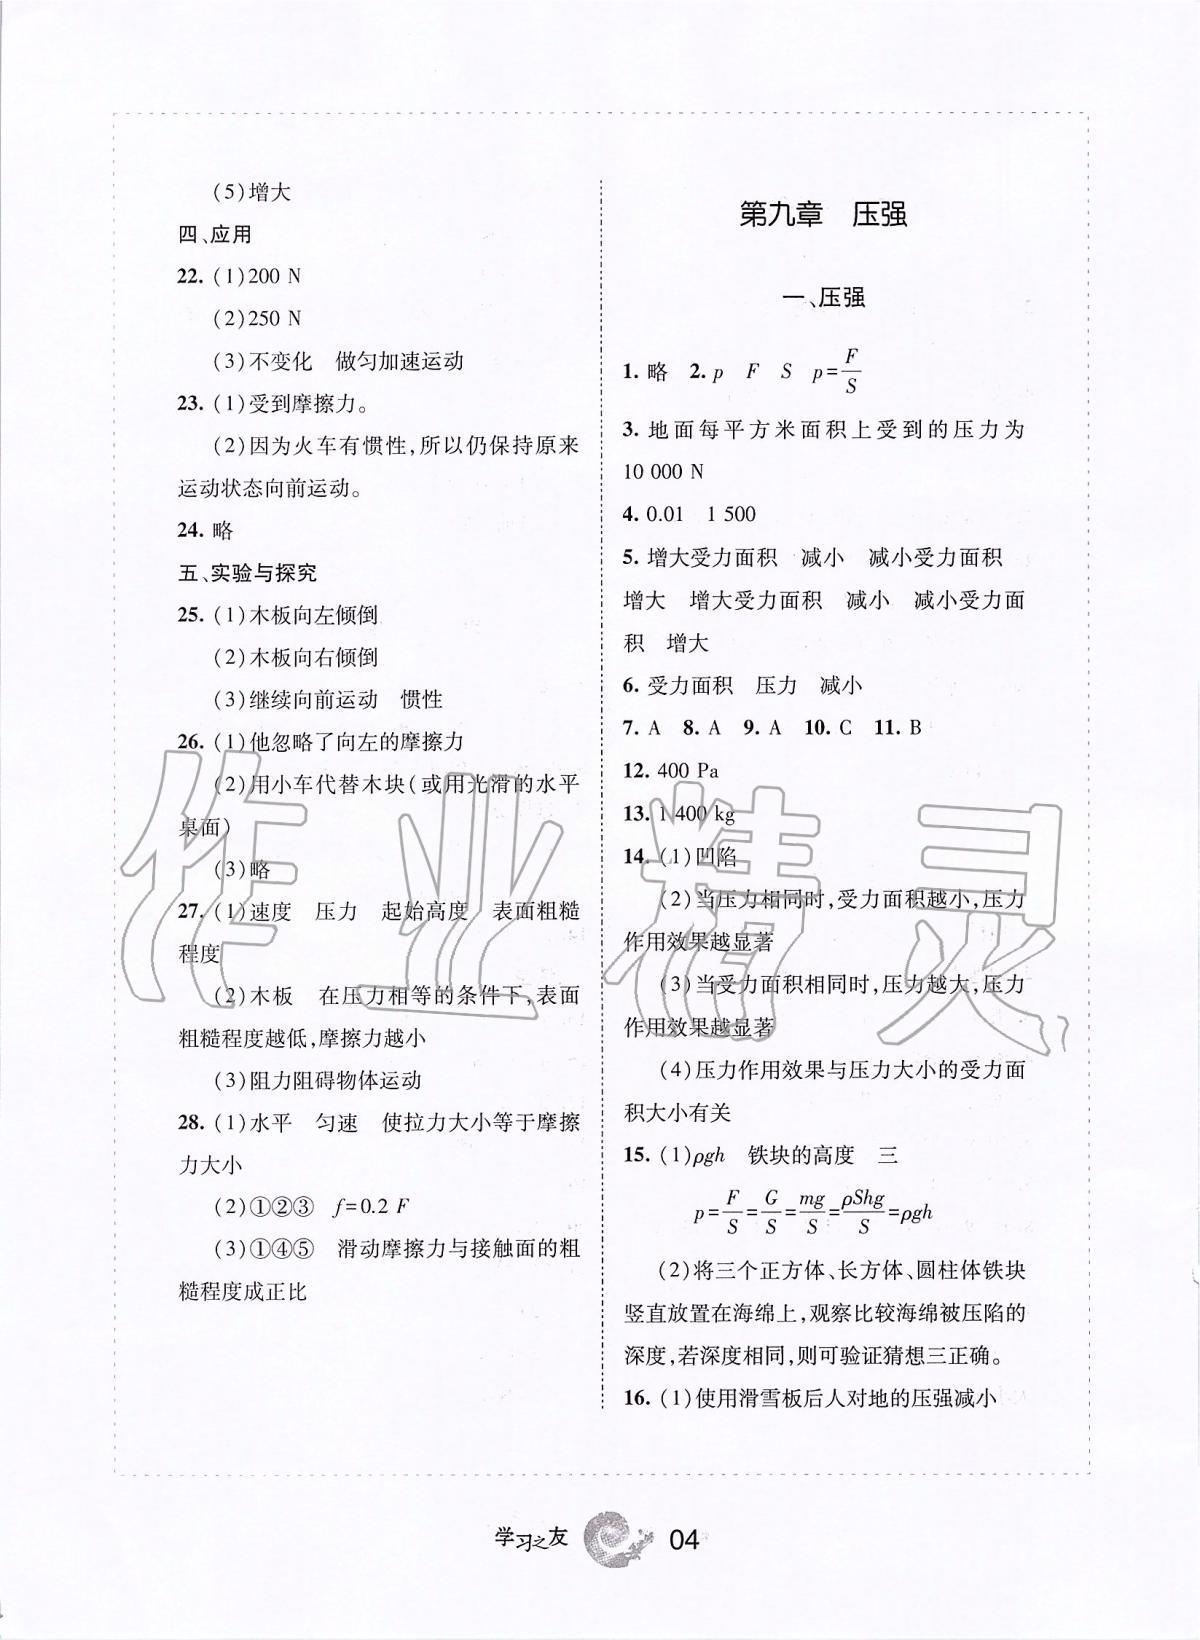 (5)增大
四、应用
22. (1)200 N
(2)250 N
(3)不变化　做匀加速运动
23. (1)受到摩擦力。
(2)因为火车有惯性,所以仍保持原来
运动状态向前运动。
24. 略
五、实验与探究
25. (1)木板向左倾倒
(2)木板向右倾倒
(3)继续向前运动　惯性
26. (1)他忽略了向左的摩擦力
(2)用小车代替木块(或用光滑的水平
桌面)
(3)略
27. (1)速度　压力　起始高度　表面粗糙
程度
(2)木板　在压力相等的条件下,表面
粗糙程度越低,摩擦力越小
(3)阻力阻碍物体运动
28. (1)水平　匀速　使拉力大小等于摩擦
力大小
(2)①②③　f=0.2 F
(3)①④⑤　滑动摩擦力与接触面的粗
糙程度成正比
第九章　压强
一、压强
1. 略　2. p　F　S　p=F/S
3. 地面每平方米面积上受到的压力为
10 000 N
4. 0.01　1 500
5. 增大受力面积　减小　减小受力面积
增大　增大受力面积　减小　减小受力面
积　增大
6. 受力面积　压力　减小
7. A　8. A　9. A　10. C　11. B
12. 400 Pa
13. 1 400 kg
14. (1)凹陷
(2)当压力相同时,受力面积越小,压力
作用效果越显著
(3)当受力面积相同时,压力越大,压力
作用效果越显著
(4)压力作用效果与压力大小的受力面
积大小有关
15. (1)ρgh　铁块的高度　三
p=F/S=G/S=mg/S=ρShg/S=ρgh
(2)将三个正方体、长方体、圆柱体铁块
竖直放置在海绵上,观察比较海绵被压陷的
深度,若深度相同,则可验证猜想三正确。
16. (1)使用滑雪板后人对地的压强减小
作业精灵
学习之友
04